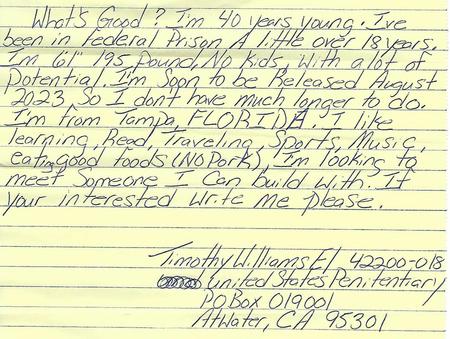 What's Good? I'm 40 years young. I've
been in Federal Prison A little over 18 years.
I'm 6'1" 195 pound, No Kids, with a lot of
potential. I'm Soon to be Released August
2023 So I dont have much longer to do.
I'm from Tampa, FLORIDA. I like
learning, Read, Traveling, Sports, Music,
eating good foods (NO Pork), I'm looking to
meet Someone I Can build with. If
your interested write me please.
Timothy Williams El 42200-018
United States Penitentiary
PO Box 019001
Atwater, CA 95301